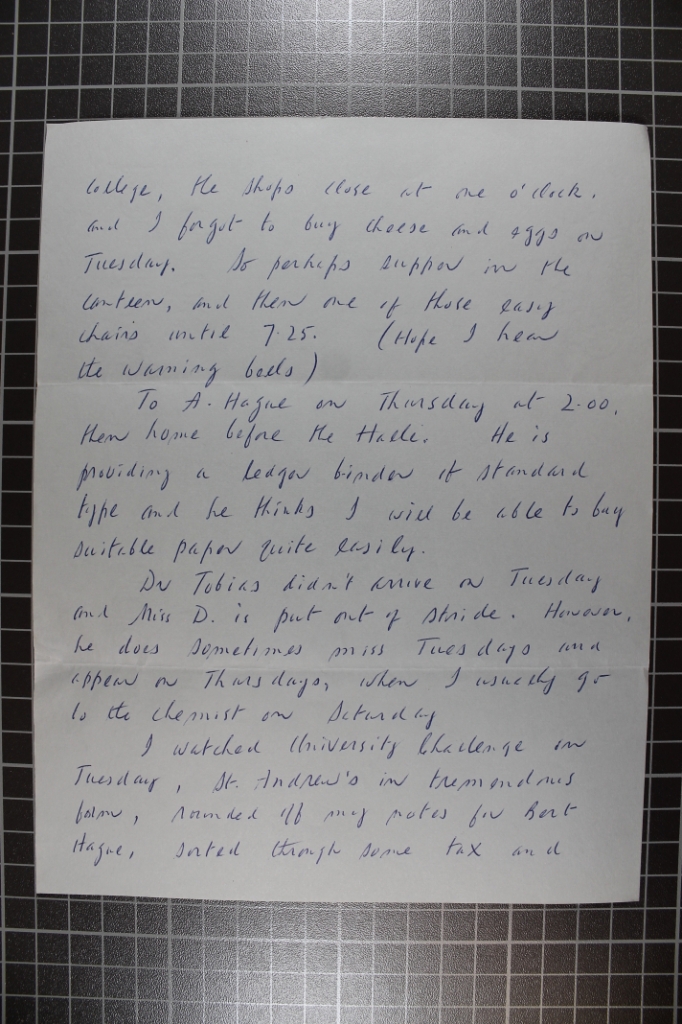 College, the shops close at one o'clock.
and I forgot to buy cheese and eggs on
Tuesday. So perhaps supper in the
canteen, and then one of those easy
chairs until 7.25. (Hope I hear
the warning bells)
To A. Hague on Thursday at 2.00,
then home before the Hallé. He is
providing a ledger binder of standard
type and he thinks I will be able to buy
suitable paper quite easily.
Dr Tobias didn't arrive on Tuesday
and Miss D. is put out of stride. However,
he does sometimes miss Tuesdays and
appear on Thursdays, when I usually go
to the chemist on Saturday
I watched University Challenge on
Tuesday, St. Andrew's in tremendous
form, rounded off my notes for Bert
Hague, sorted through some tax and